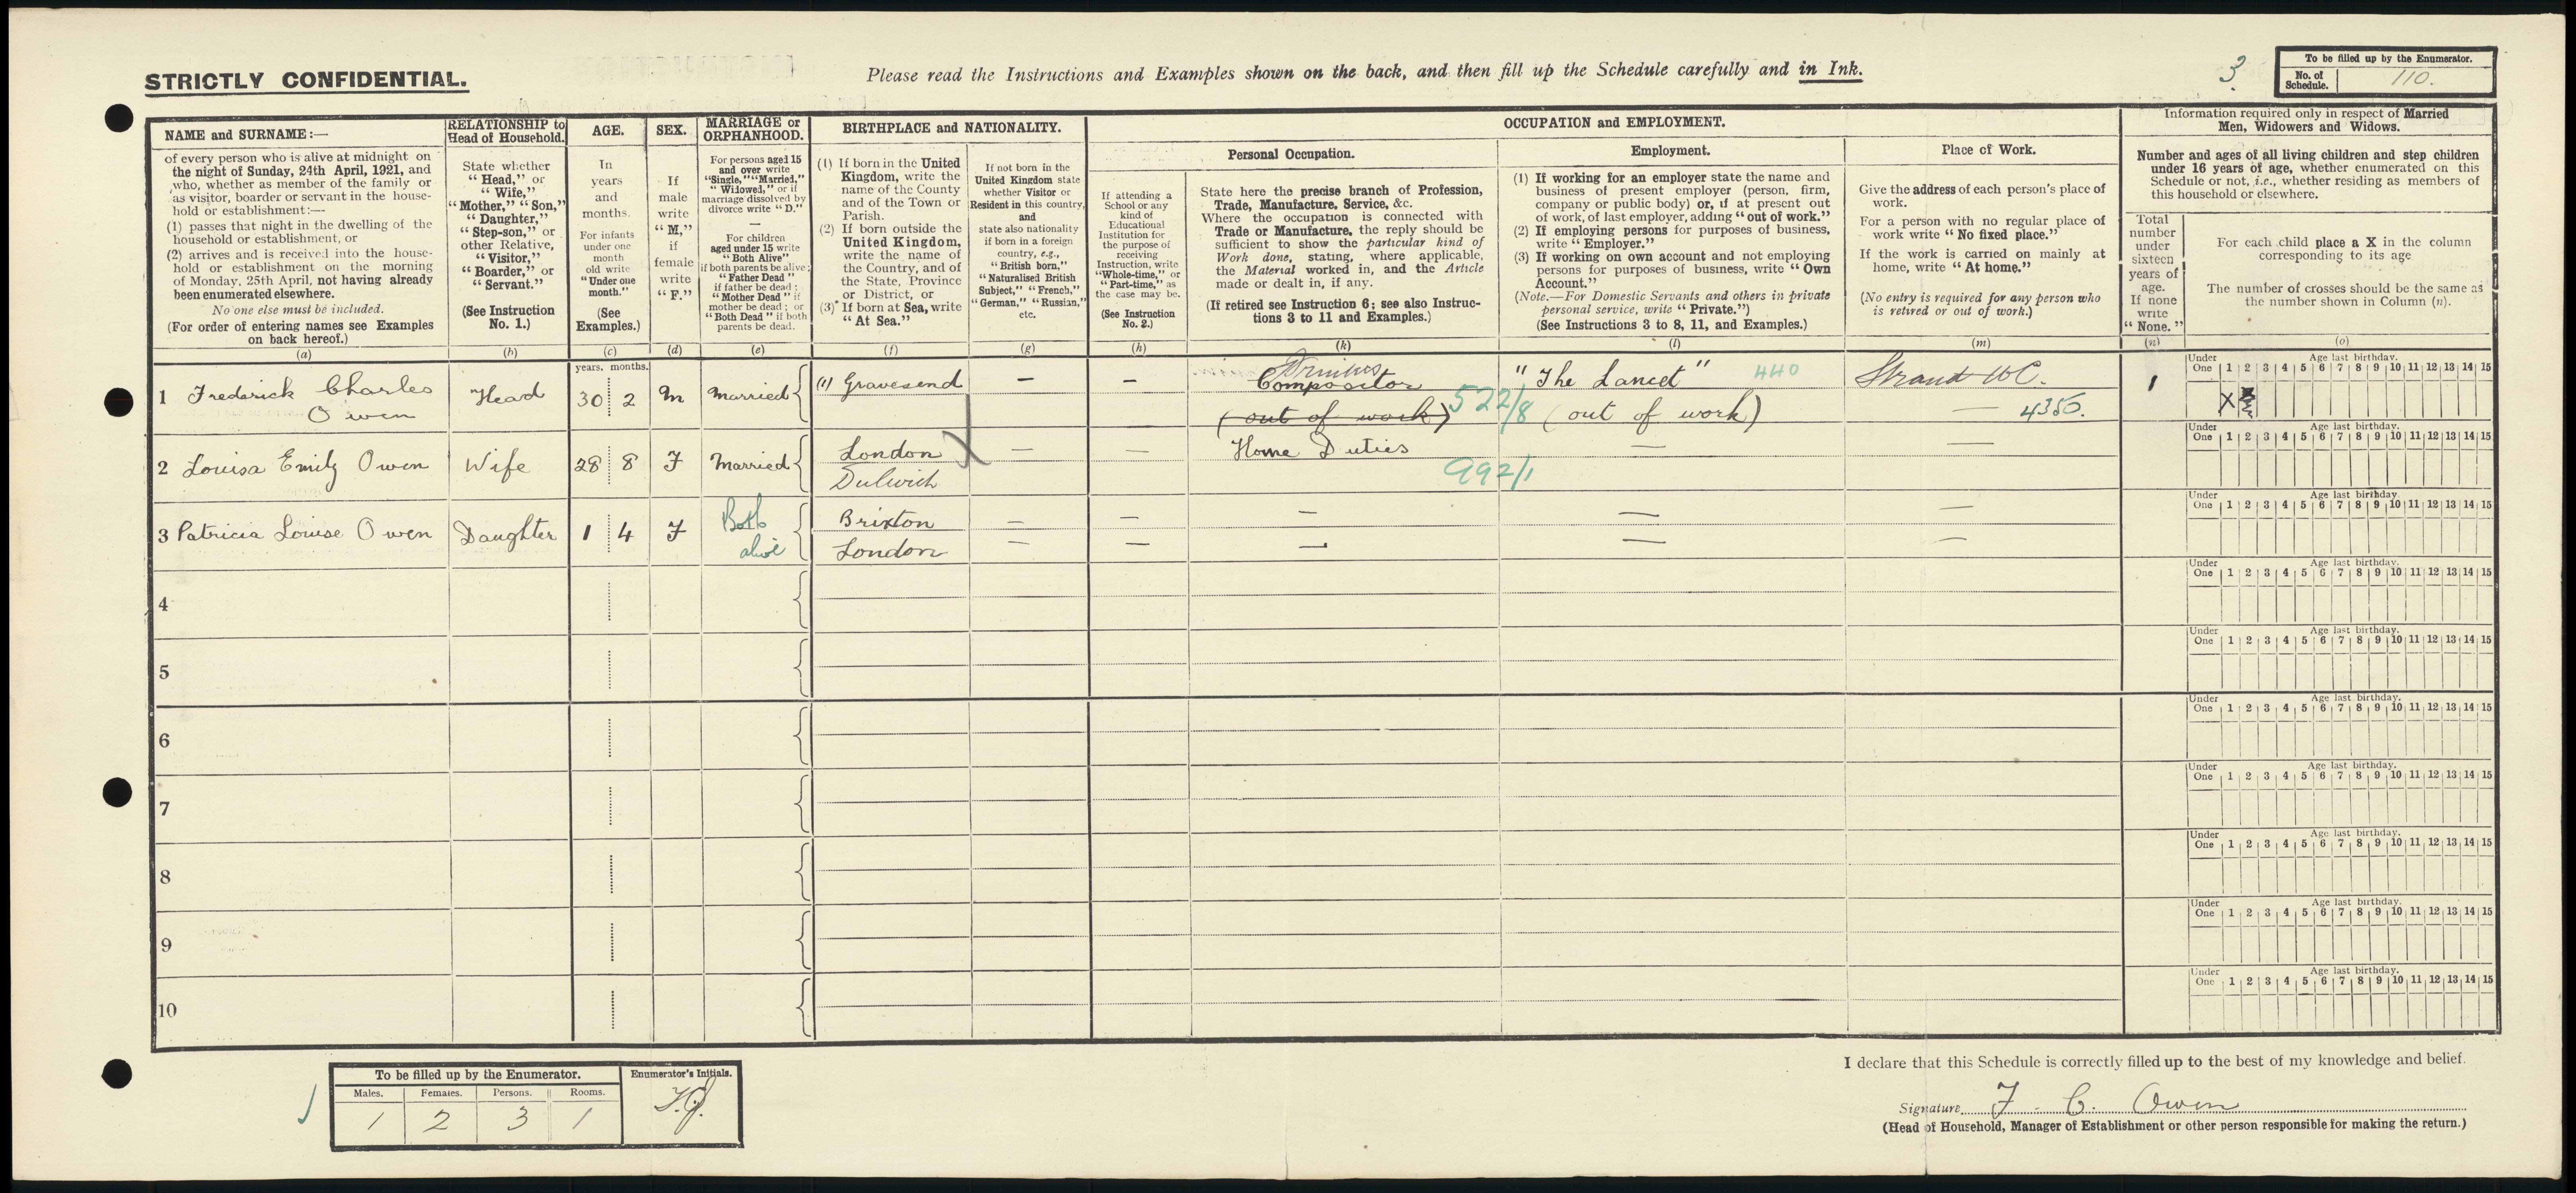 STRICTLY CONFIDENTIAL.
Please read the Instructions and Examples shown on the back, and then fill up the Schedule carefully and in Ink.
3
To be filled up by the Enumerator.
No. of Schedule. 110.
NAME and SURNAME:—
of every person who is alive at midnight on
the night of Sunday, 24th April, 1921, and
who, whether as member of the family or
as visitor, boarder or servant in the house-
hold or establishment:—
(1) passes that night in the dwelling of the
household or establishment, or
(2) arrives and is received into the house-
hold or establishment on the morning
of Monday, 25th April, not having already
been enumerated elsewhere.
No one else must be included.
(For order of entering names see Examples
on back hereof.)
(a)
RELATIONSHIP to
Head of Household.
State whether
"Head," or
"Wife,"
"Mother," "Son,"
"Daughter,"
"Step-son," or
other Relative,
"Visitor,"
"Boarder," or
"Servant."
(See Instruction
No. 1.)
(b)
AGE.
In
years
and
months.
For infants
under one
month
old write
"Under one
month."
(See
Examples.)
(c)
SEX.
If
male
write
"M,"
if
female
write
"F."
(d)
MARRIAGE or
ORPHANHOOD.
For persons aged 15
and over write
"Single," "Married,"
"Widowed," or if
marriage dissolved by
divorce write "D."
For children
aged under 15 write
"Both Alive"
if both parents be alive;
"Father Dead"
if father be dead;
"Mother Dead" if
mother be dead; or
"Both Dead" if both
parents be dead.
(e)
BIRTHPLACE and NATIONALITY.
(1) If born in the United
Kingdom, write the
name of the County
and of the Town or
Parish.
(2) If born outside the
United Kingdom,
write the name of
the Country, and of
the State, Province
or District, or
(3) If born at Sea, write
"At Sea."
(f)
If not born in the
United Kingdom state
whether Visitor or
Resident in this country,
and
state also nationality
if born in a foreign
country, e.g.,
"British born,"
"Naturalised British
Subject," "French,"
"German," "Russian,"
etc.
(g)
OCCUPATION and EMPLOYMENT.
If attending a
School or any
kind of
Educational
Institution for
the purpose of
receiving
Instruction, write
"Whole-time," or
"Part-time," as
the case may be.
(See Instruction
No. 2.)
(h)
Personal Occupation.
State here the precise branch of Profession,
Trade, Manufacture, Service, &c.
Where the occupation is connected with
Trade or Manufacture, the reply should be
sufficient to show the particular kind of
Work done, stating, where applicable,
the Material worked in, and the Article
made or dealt in, if any.
(If retired see Instruction 6; see also Instruc-
tions 3 to 11 and Examples.)
(k)
Employment.
(1) If working for an employer state the name and
business of present employer (person, firm,
company or public body) or, if at present out
of work, of last employer, adding "out of work."
(2) If employing persons for purposes of business,
write "Employer."
(3) If working on own account and not employing
persons for purposes of business, write "Own
Account."
(Note.—For Domestic Servants and others in private
personal service, write "Private.")
(See Instructions 3 to 8, 11, and Examples.)
(l)
Place of Work.
Give the address of each person's place of
work.
For a person with no regular place of
work write "No fixed place."
If the work is carried on mainly at
home, write "At home."
(No entry is required for any person who
is retired or out of work.)
(m)
Information required only in respect of Married
Men, Widowers and Widows.
Number and ages of all living children and step children
under 16 years of age, whether enumerated on this
Schedule or not, i.e., whether residing as members of
this household or elsewhere.
Total
number
under
sixteen
years of
age.
If none
write
"None."
(n)
For each child place a X in the column
corresponding to its age
The number of crosses should be the same as
the number shown in Column (n).
(o)
years. months.
Under One Age last birthday. 1 2 3 4 5 6 7 8 9 10 11 12 13 14 15
1 Frederick Charles Owen Head 30 2 M Married (1) Gravesend — — Printers Compositor (out of work) 522/8 "The Lancet" 440 (out of work) Strand WC. — 4350. 1 X
Under One Age last birthday. 1 2 3 4 5 6 7 8 9 10 11 12 13 14 15
2 Louisa Emily Owen Wife 28 8 F Married London Dulwich — — Home Duties 992/1 — —
Under One Age last birthday. 1 2 3 4 5 6 7 8 9 10 11 12 13 14 15
3 Patricia Louise Owen Daughter 1 4 F Both alive Brixton London — — — — —
Under One Age last birthday. 1 2 3 4 5 6 7 8 9 10 11 12 13 14 15
4
Under One Age last birthday. 1 2 3 4 5 6 7 8 9 10 11 12 13 14 15
5
Under One Age last birthday. 1 2 3 4 5 6 7 8 9 10 11 12 13 14 15
6
Under One Age last birthday. 1 2 3 4 5 6 7 8 9 10 11 12 13 14 15
7
Under One Age last birthday. 1 2 3 4 5 6 7 8 9 10 11 12 13 14 15
8
Under One Age last birthday. 1 2 3 4 5 6 7 8 9 10 11 12 13 14 15
9
Under One Age last birthday. 1 2 3 4 5 6 7 8 9 10 11 12 13 14 15
10
To be filled up by the Enumerator.
Males. Females. Persons. Rooms.
1 2 3 1
Enumerator's Initials.
I declare that this Schedule is correctly filled up to the best of my knowledge and belief.
Signature F. C. Owen
(Head of Household, Manager of Establishment or other person responsible for making the return.)